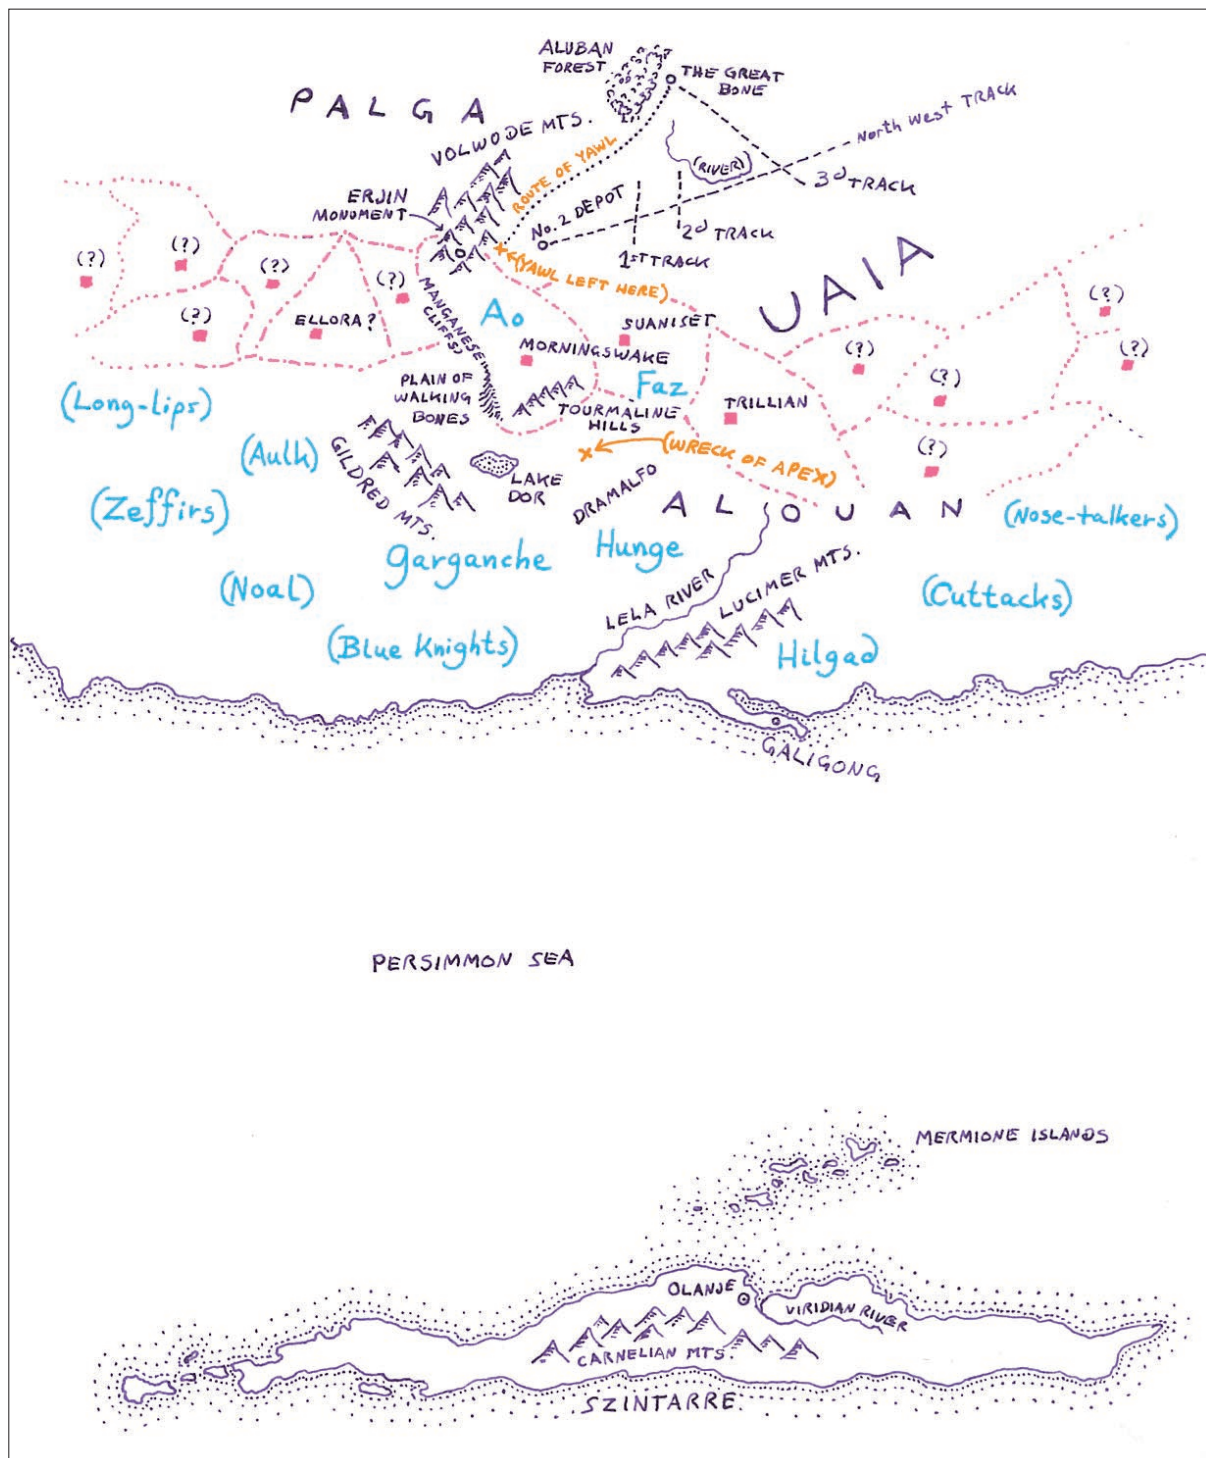 ALUBAN
FOREST
THE GREAT
BONE
PALGA
NORTH WEST TRACK
VOLWODE MTS.
ROUTE OF YAWL
(RIVER)
3d TRACK
ERJIN
MONUMENT
No. 2 DEPOT
2d TRACK
1ST TRACK
(YAWL LEFT HERE)
UAIA
(?)
(?)
(?)
(?)
(?)
ELLORA?
MANGANESE
CLIFFS)
Ao
SUANISET
MORNINGSWAKE
(?)
(?)
(?)
(?)
(?)
Faz
TRILLIAN
PLAIN OF
WALKING
BONES
TOURMALINE
HILLS
(Long-lips)
(Aulk)
GILDRED MTS.
LAKE
DOR
(WRECK OF APEX)
DRAMALFO
ALOUAN
(Zeffirs)
(Nose-talkers)
Garganche
Hunge
(Noal)
LELA RIVER
LUCIMER MTS.
(Cuttacks)
(Blue Knights)
Hilgad
GALIGONG
PERSIMMON SEA
MERMIONE ISLANDS
OLANJE
VIRIDIAN
RIVER
CARNELIAN MTS.
SZINTARRE